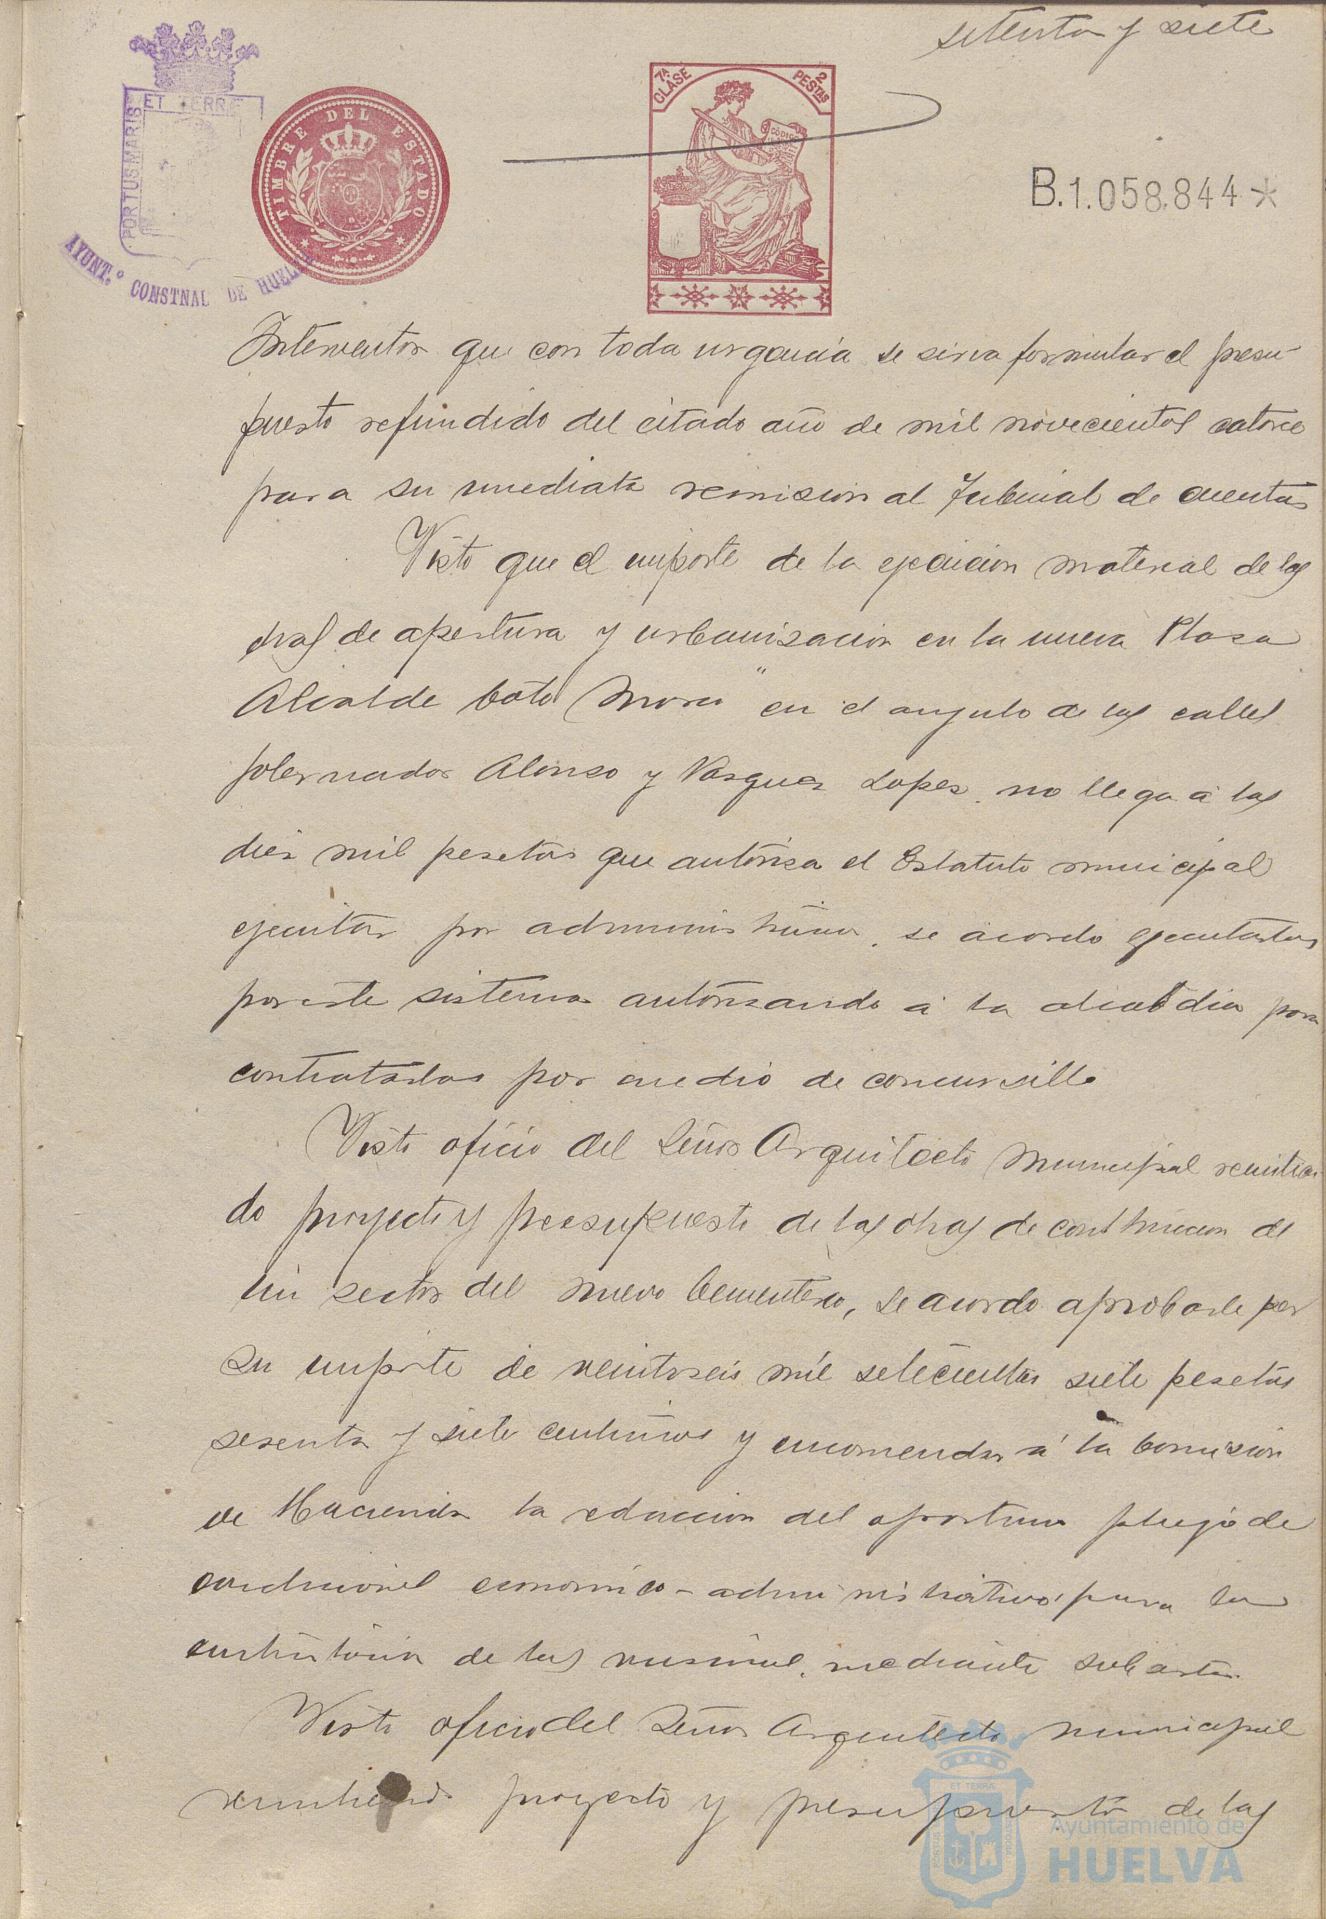 setenta y siete
ET TERRÆ
PORTUS MARIS
AYUNT.º CONSTNAL DE HUELVA
TIMBRE DEL ESTADO
7ª CLASE
2 PESTAS
CÓDIGO
B.1.058.844*
Interventor que con toda urgencia se sirva formular el presu-
puesto refundido del citado año de mil novecientos catorce
para su inmediata remision al Tribunal de cuentas
Visto que el importe de la ejecucion material de las
obras de apertura y urbanizacion en la nueva Plaza
Alcalde Coto Mora" en el angulo de las calles
Gobernador Alonso y Vazquez Lopez, no llega á las
diez mil pesetas que autoriza el Estatuto municipal
ejecutar por administración, se acordo ejecutarlas
por este sistema autorizando á la alcaldia para
contratarlas por medio de concursillo
Visto oficio del Señor Arquitecto Municipal remitien
do proyecto y presupuesto de las obras de construccion de
un sector del nuevo Cementerio, se acordo aprobarle por
su importe de veintiseis mil setecientas siete pesetas
sesenta y siete centimos y encomendar á la Comision
de Hacienda la redaccion del oportuno pliego de
condiciones economico-administrativo para la
contratacion de las mismas, mediante subasta.
Visto oficio del Señor Arquitecto municipal
remitiendo proyecto y presupuesto de las
ET TERRA
Ayuntamiento de
HUELVA